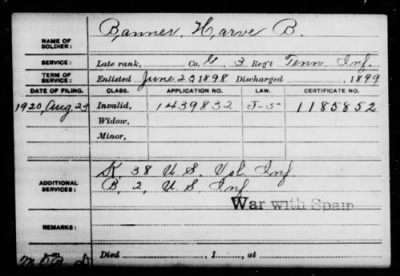 NAME OF SOLDIER: Banner, Harve B.
SERVICE: Late rank, Co. G, 3 Reg't Tenn. Inf.
TERM OF SERVICE: Enlisted June 23 1898 Discharged , 1899
DATE OF FILING. CLASS. APPLICATION NO. LAW. CERTIFICATE NO.
1920, Aug. 23 Invalid, 1439832 J-5 1185852
Widow,
Minor,
ADDITIONAL SERVICES: K. 38 U. S. Vol. Inf.
B. 2, U. S. Inf.
War with Spain
REMARKS:
Died , 1 , at